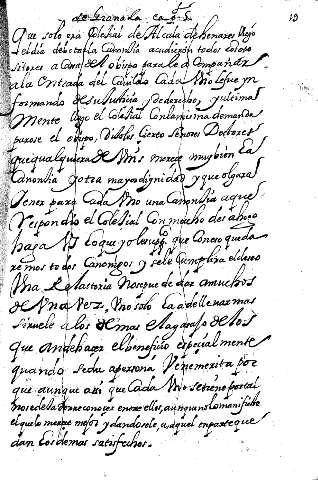 de Granada. ca 19
Que solo era Colesial de Alcala de henares llego
el dia de botar la Canonsia acudieron todos los opo
sitores a Casa del obispo para le acompañar
a la entrada del Cabildo Cada uno le fue yn
formando de su Justicia y derecho, y ultima
Mente llego el Colesial con la misma demanda
parose el obispo, Dijoles Cierto Señores Doctores
que qualquiera de Vms merece muy bien la
Canonsia y otra mayor dignidad y que olgara
tener para Cada Uno una Canonsia a que
Respondio el Colesial Con mucho desahogo
haga Vs lo que yo le que Con eso queda
remos todos Canonigos y sele Cumplira el deseo
Una Relatoria No se puede dar a muchos
de Una Vez, Uno solo la a de lle uar mas
sirvele a los demas el agasajo de los
que an de haser el beneficio especialmente
quando se da a persona Venemerita por
que aunque asi que Cada Uno se tiene por tal
No se deja de Reconocer entre ellos, aunque no lo manifieste
el que lo merese mejor y dandosele, a aquel en parte que
dan los demas satisfechos.